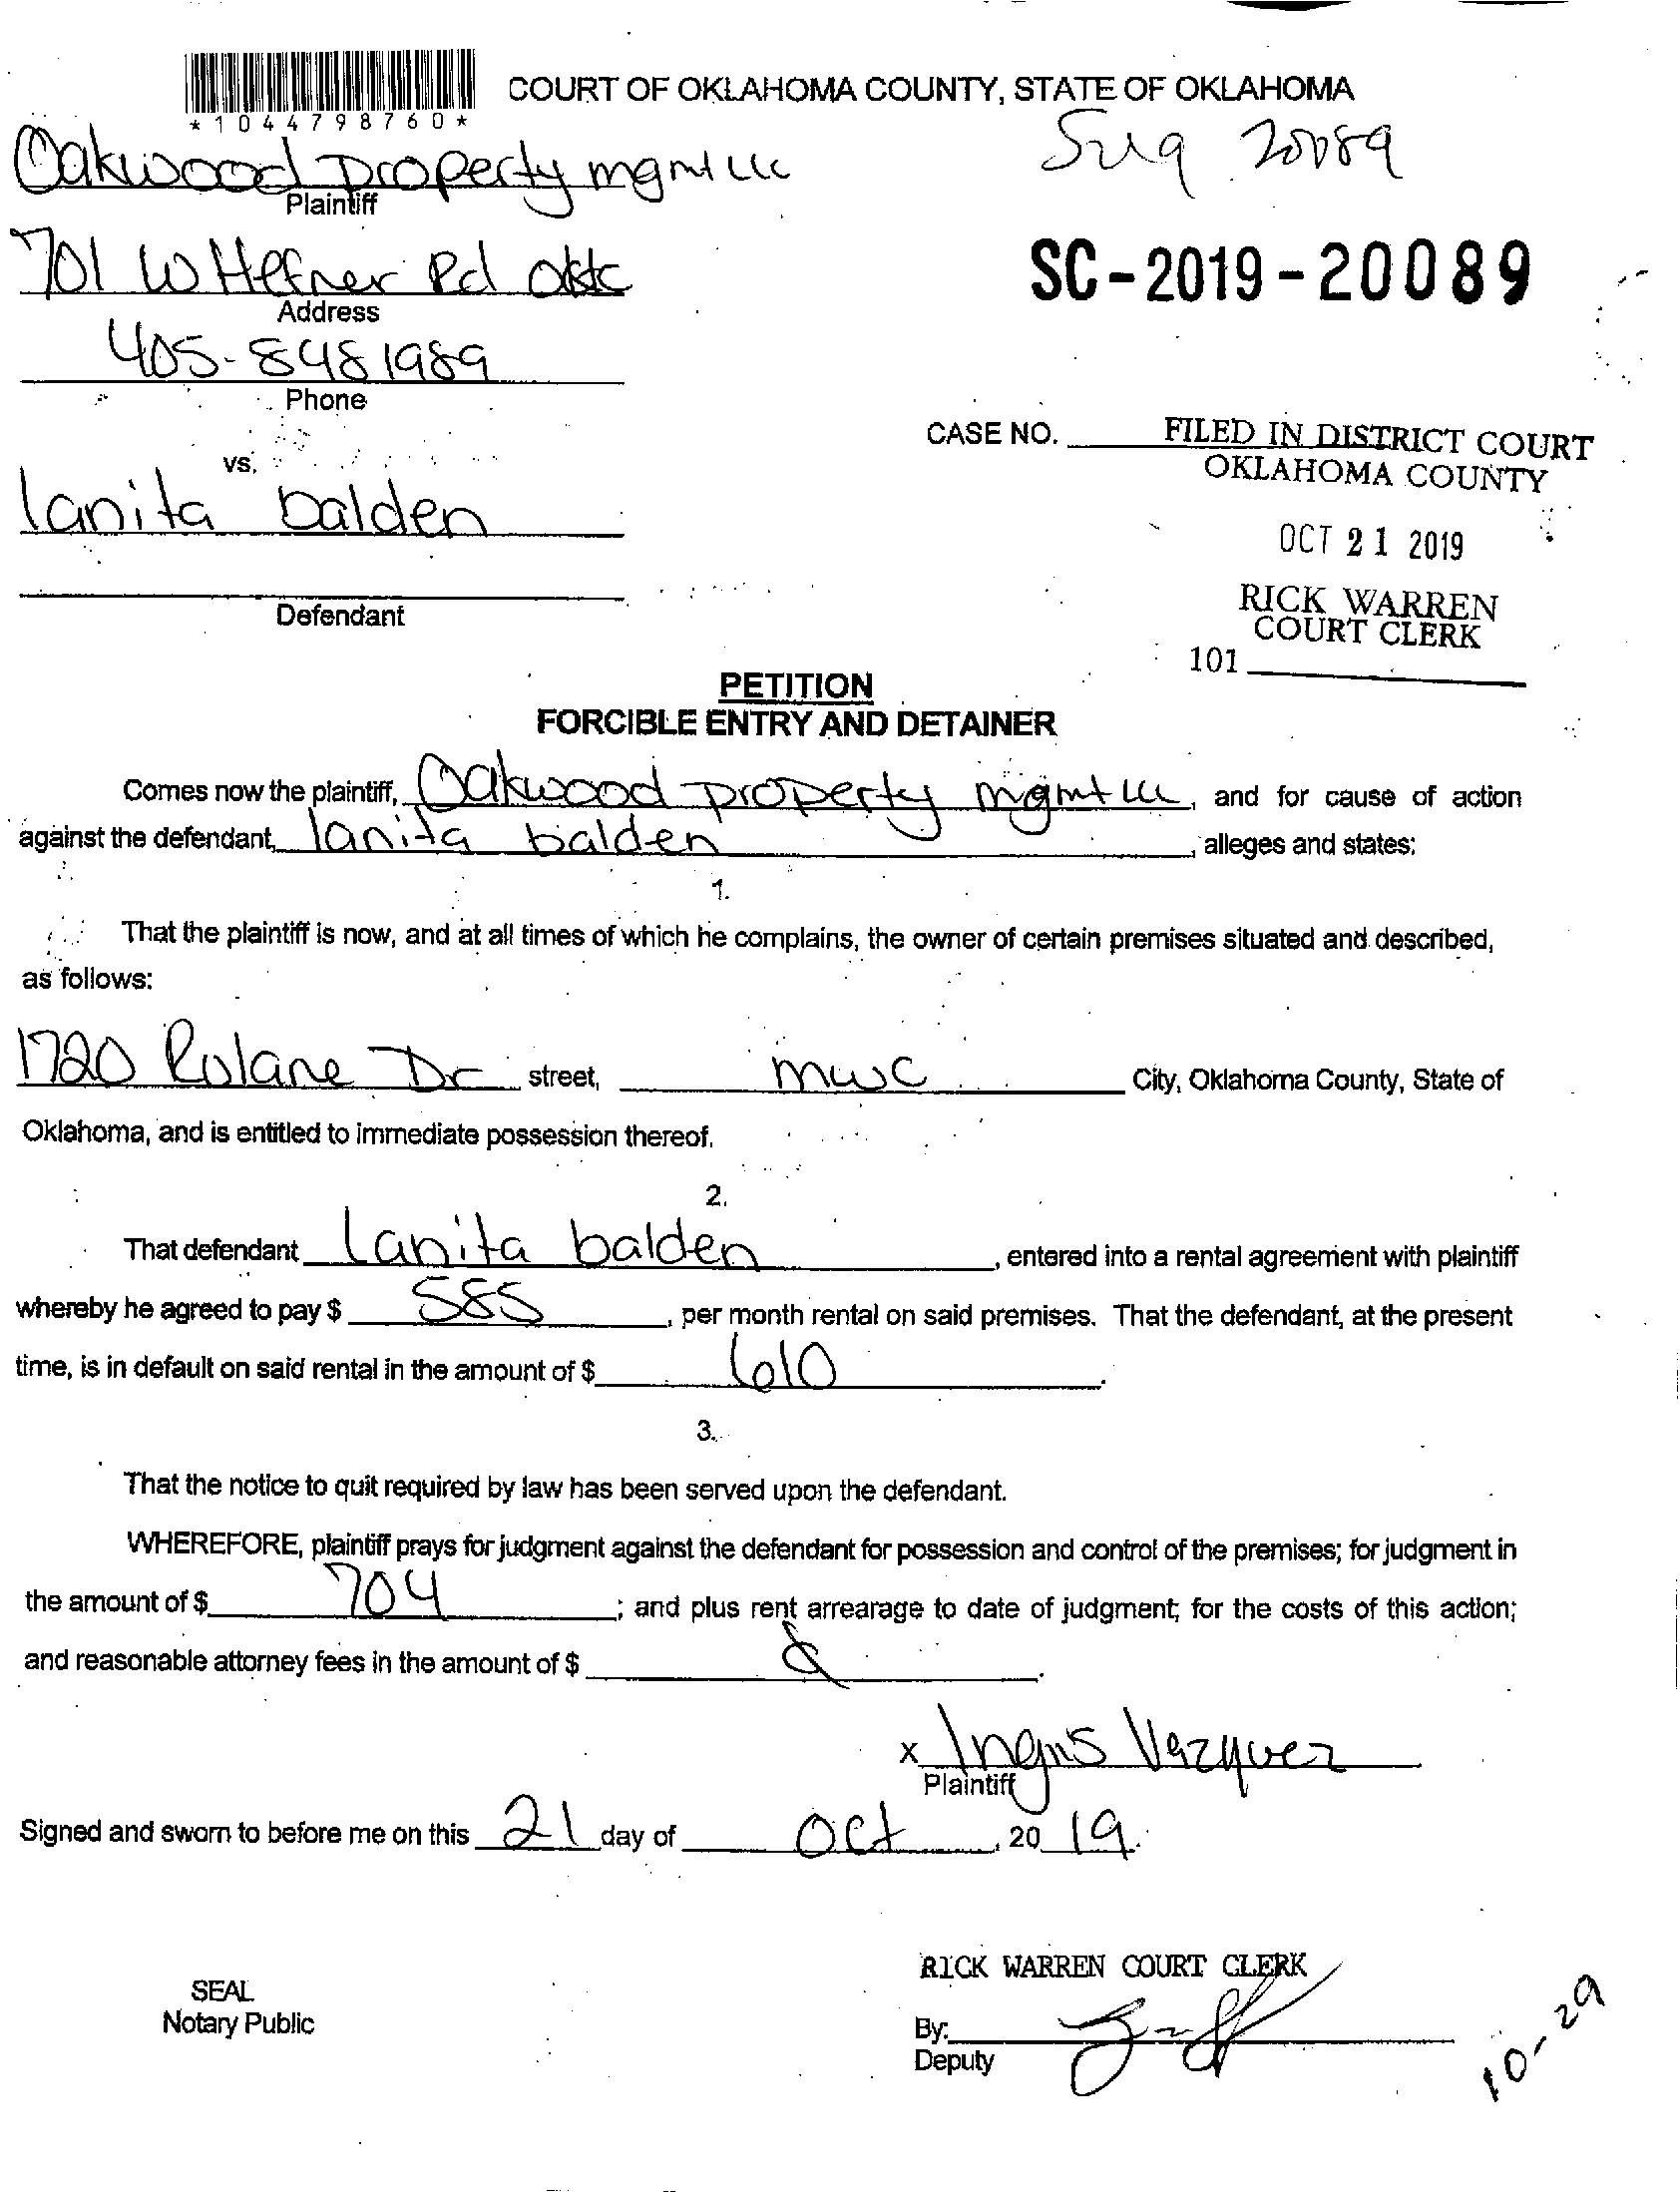 COURT OF OKLAHOMA COUNTY, STATE OF OKLAHOMA
*1044798760*
Oakwood property mgmt llc
Plaintiff
701 W Hefner Rd
Address
SC-2019-20089
405-8481989
Phone
CASE NO.
FILED IN DISTRICT COURT
OKLAHOMA COUNTY
vs.
lanita balden
OCT 21 2019
Defendant
RICK WARREN
COURT CLERK
101
PETITION
FORCIBLE ENTRY AND DETAINER
Comes now the plaintiff, Oakwood property mgmt llc, and for cause of action
against the defendant, lanita balden, alleges and states:
1.
That the plaintiff is now, and at all times of which he complains, the owner of certain premises situated and described,
as follows:
1720 Rulane Dr street, mwc City, Oklahoma County, State of
Oklahoma, and is entitled to immediate possession thereof.
2.
That defendant lanita balden, entered into a rental agreement with plaintiff
whereby he agreed to pay $ 585, per month rental on said premises. That the defendant, at the present
time, is in default on said rental in the amount of $ 610.
3.
That the notice to quit required by law has been served upon the defendant.
WHEREFORE, plaintiff prays for judgment against the defendant for possession and control of the premises; for judgment in
the amount of $ 704; and plus rent arrearage to date of judgment; for the costs of this action;
and reasonable attorney fees in the amount of $
x Vazquez
Plaintiff
Signed and sworn to before me on this 21 day of Oct, 20 19.
RICK WARREN COURT CLERK
SEAL
Notary Public
By:
Deputy
10-29